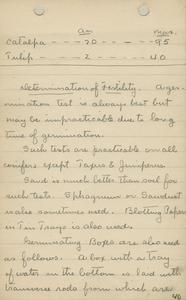 av. max.
Catalpa -- -- 70 -- -- -- 95
Tulip -- -- -- 2 -- -- -- 40
Determination of Fertility. A ger-
mination test is always best but
may be impracticable due to long
time of germination.
Such tests are practicable on all
conifers except Taxus & Juniperus.
Sand is much better than soil for
such tests. Sphagnum or Sawdust
is also sometimes used. Blotting Paper
in Tin Trays is also used.
Germinating Boxes are also used
as follows. A box with a tray
of water in the bottom is laid with
transverse rods from which are